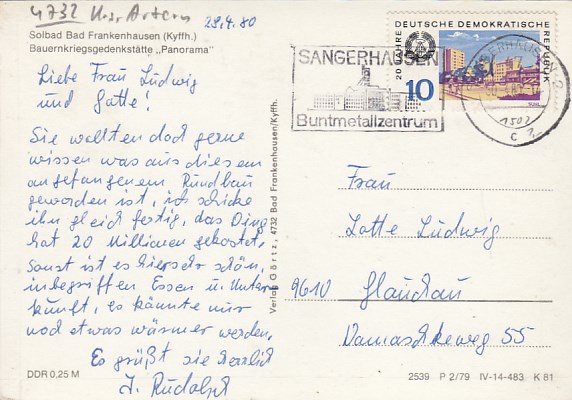 4732 Krs. Artern
29.4.80
Solbad Bad Frankenhausen (Kyffh.)
Bauernkriegsgedenkstätte „Panorama"
Liebe Frau Ludwig
und Gatte!
Sie wollten doch gerne
wissen was aus diesem
angefangenem Rundbau
geworden ist, ich schicke
ihn gleich fertig, das Ding
hat 20 Millionen gekostet,
Sonst ist es hier sehr schön,
inbegriffen Essen u. Unter
kunft, es könnte nur
noch etwas wärmer werden.
Es grüßt sie herzlich
J. Rudolph
DDR 0,25 M
Verlag Görtz, 4732 Bad Frankenhausen/Kyffh.
SANGERHAUSEN
Buntmetallzentrum
20 JAHRE DEUTSCHE DEMOKRATISCHE REPUBLIK
10
SUHL
SANGERHAUSEN 2
1502
c
Frau
Lotte Ludwig
9610 Glauchau
Damaschkeweg 55
2539 P 2/79 IV-14-483 K 81